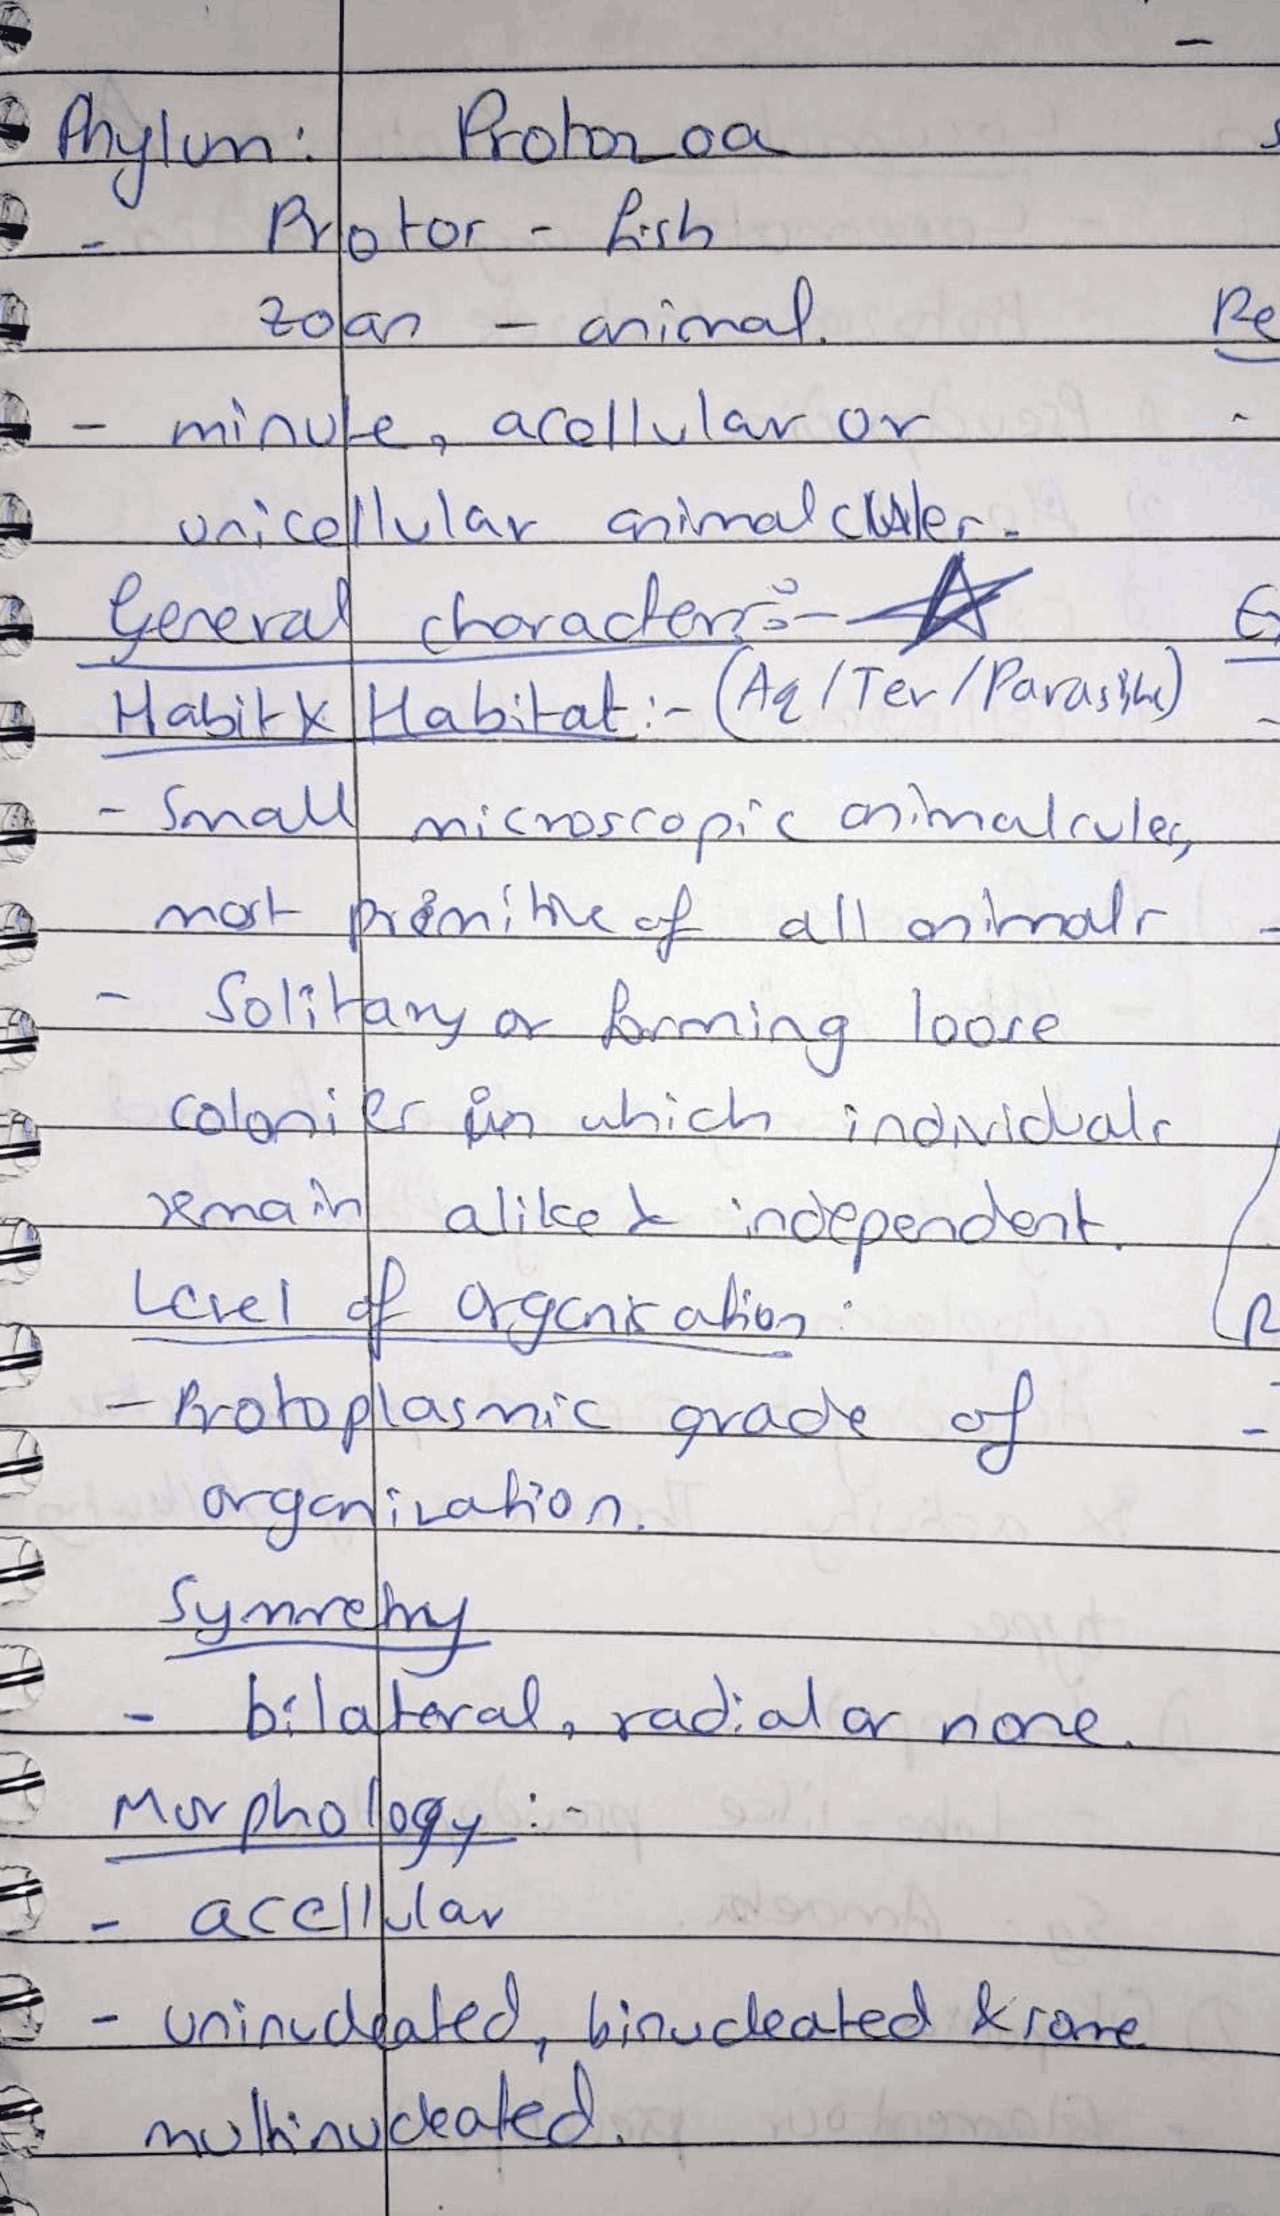 Phylum: Protozoa
- Protor - first
zoan - animal.
- minute, acellular or
unicellular animalcules.
General characters:-
Habit & Habitat:- (Aq/Ter/Parasitic)
- Small microscopic animalcules,
most primitive of all animals
- Solitary or forming loose
colonies in which individuals
remain alike & independent.
Level of organisation:
- Protoplasmic grade of
organization.
Symmetry
- bilateral, radial or none.
Morphology:-
- acellular
- uninucleated, binucleated & some
multinucleated.